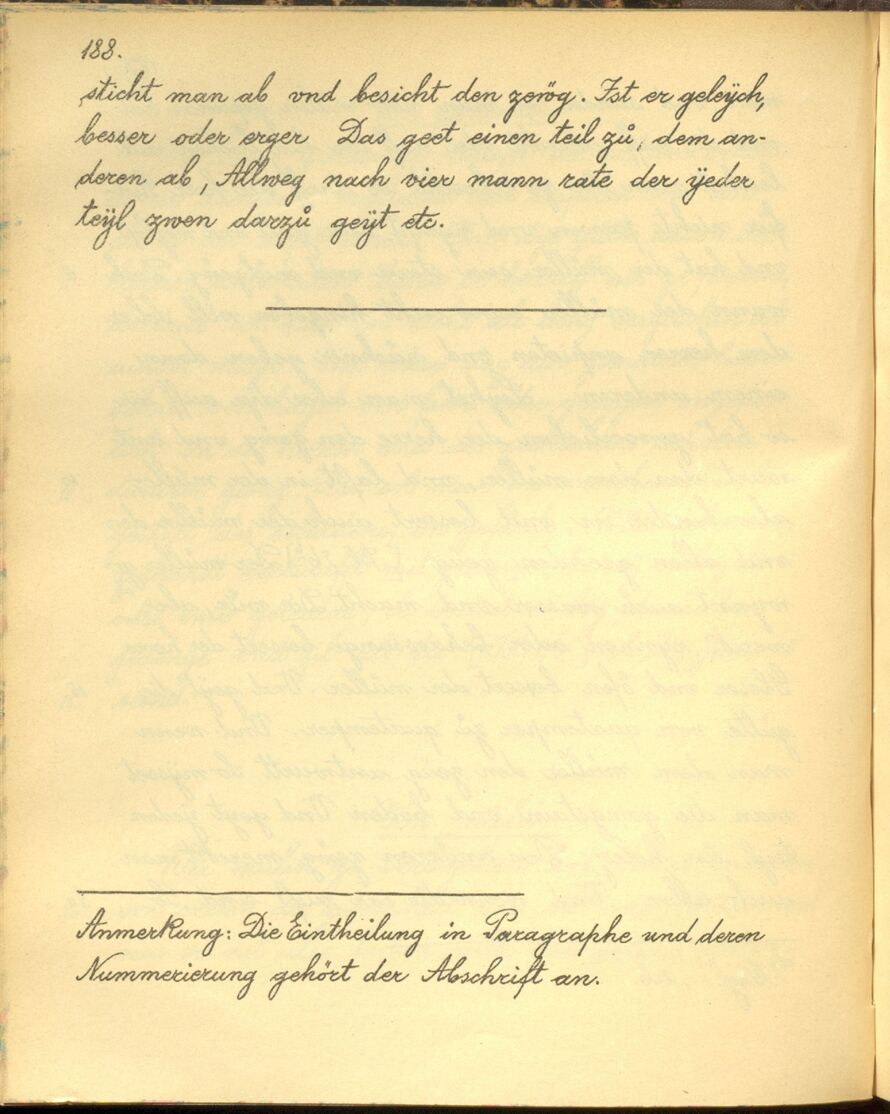 188.
sticht man ab vnd besicht den zeẅg. Ist er geleÿch,
besser oder erger Das geet einen teil zů, dem an-
deren ab, Allweg nach vier mann rate der ÿeder
teÿl zwen darzů geÿt etc.
Anmerkung: Die Eintheilung in Paragraphe und deren
Nummerierung gehört der Abschrift an.